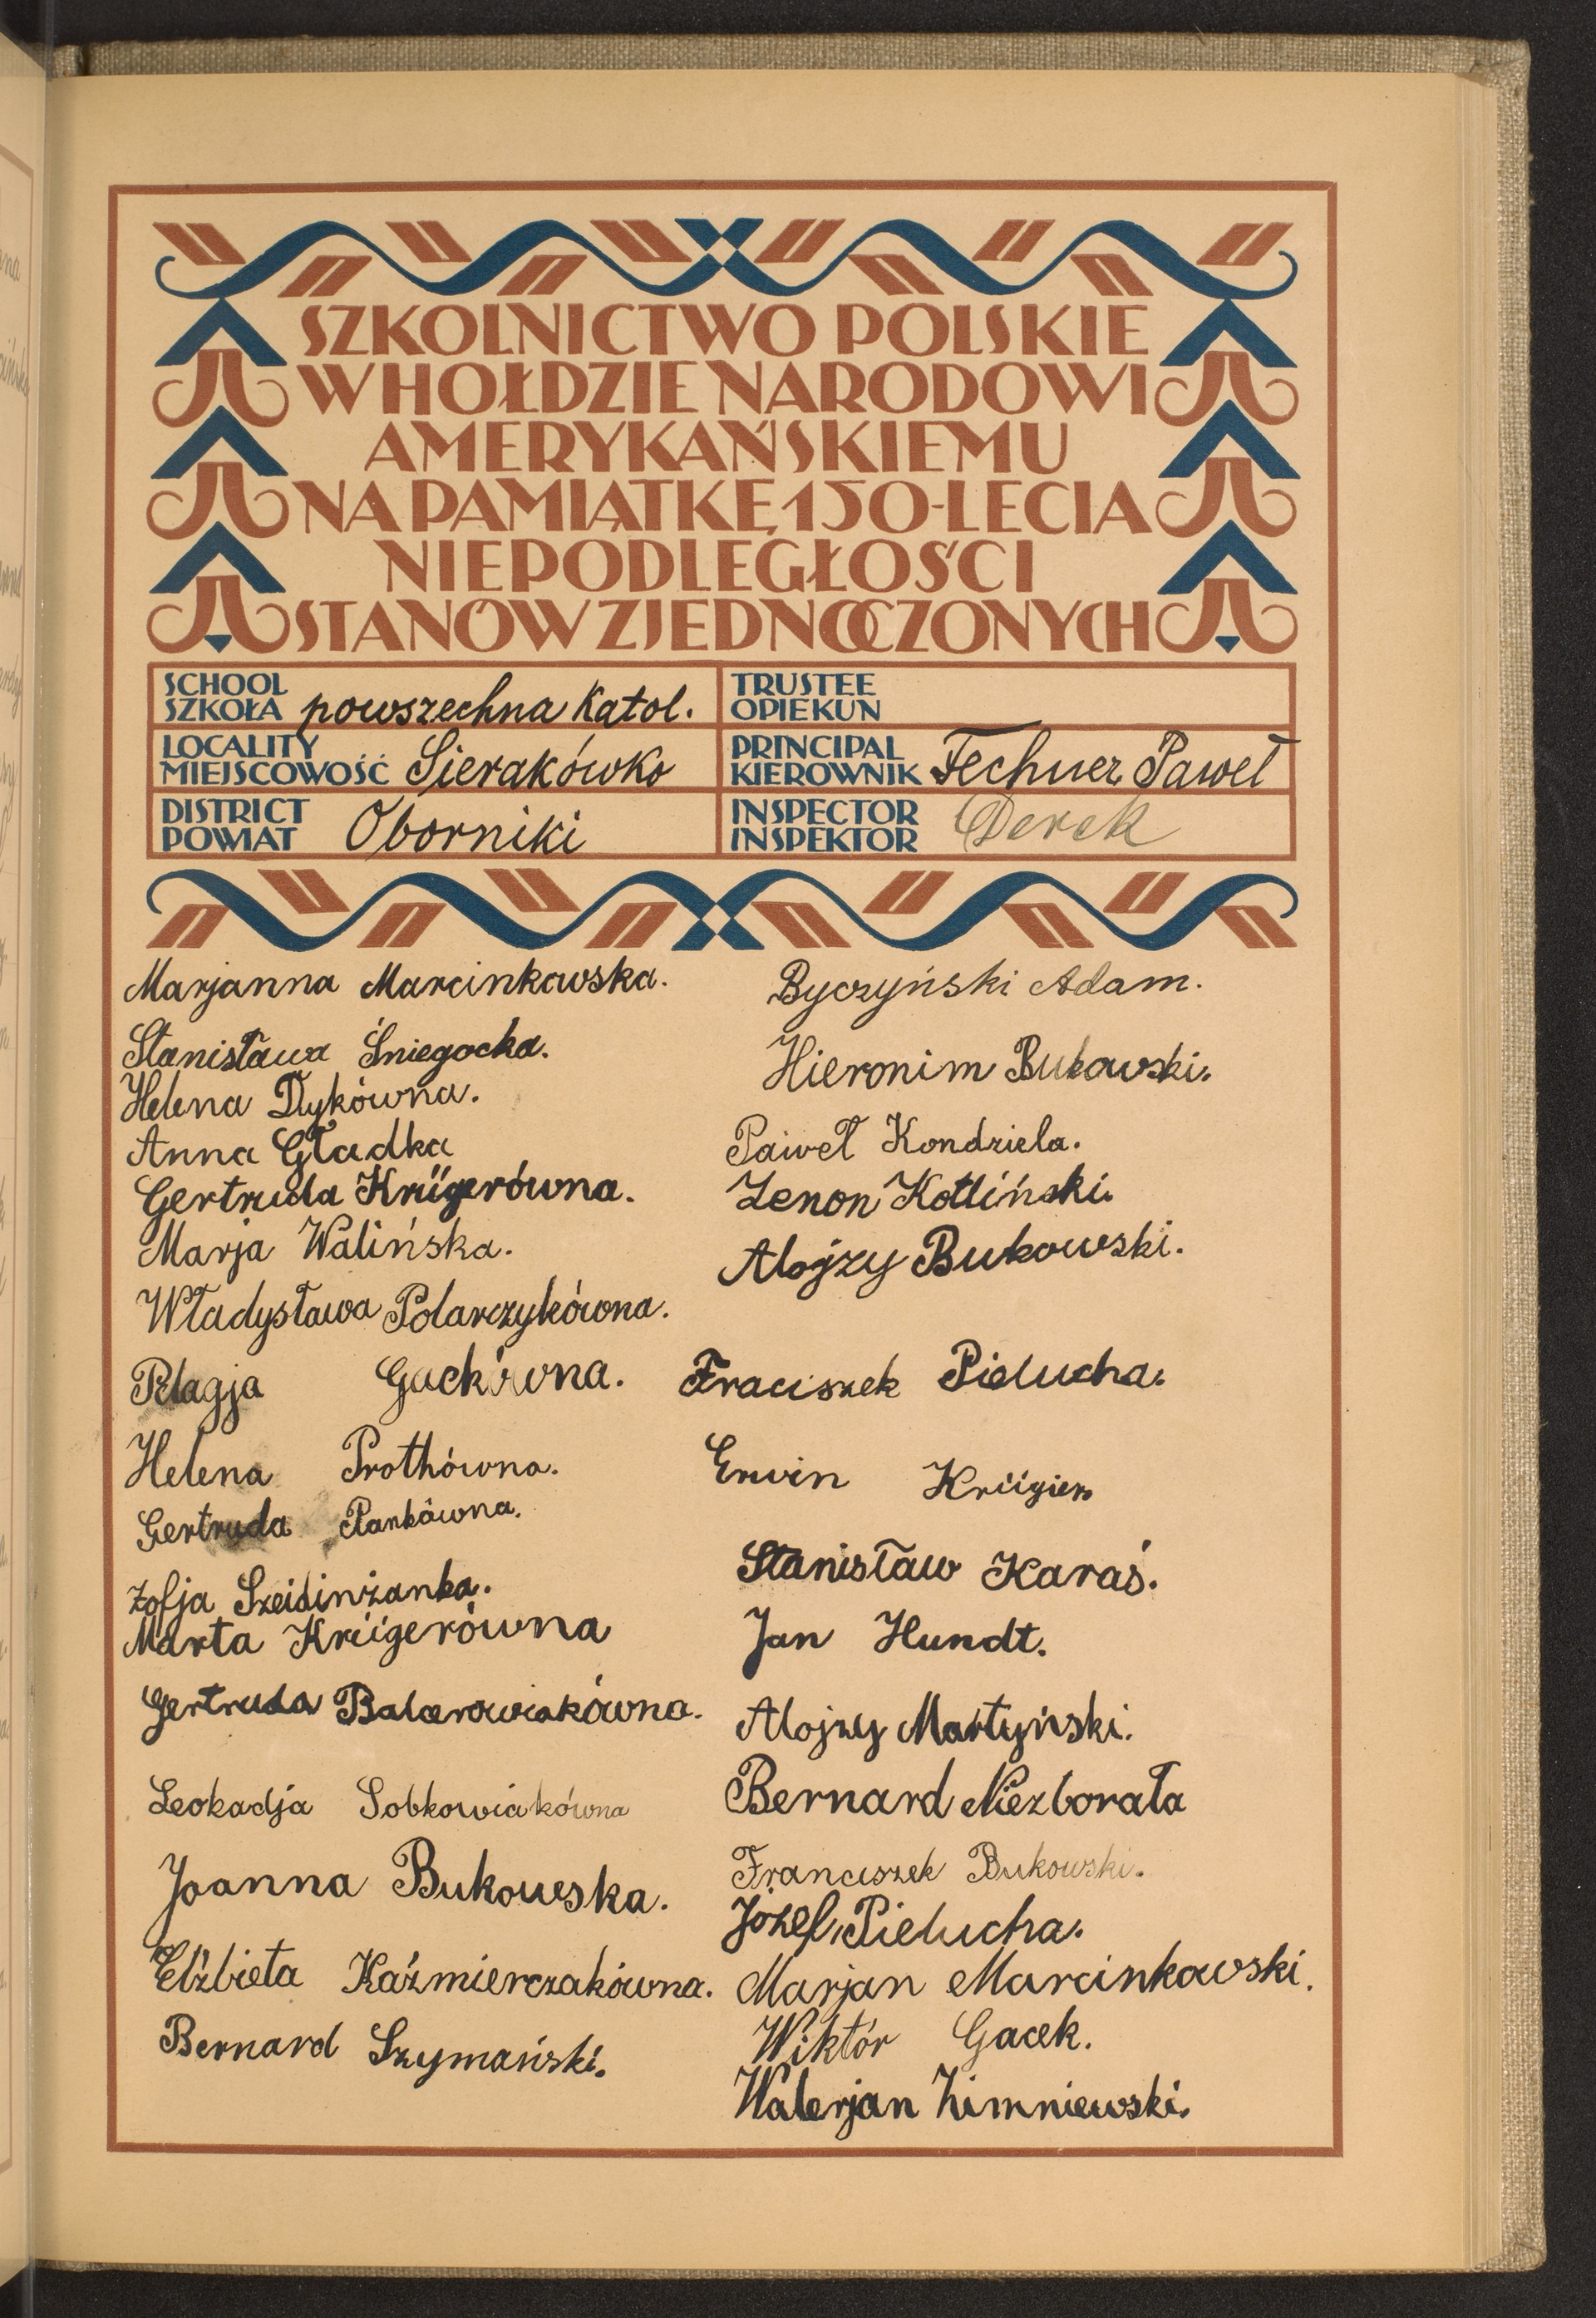 SZKOLNICTWO POLSKIE
W HOŁDZIE NARODOWI
AMERYKAŃSKIEMU
NA PAMIĄTKĘ 150-LECIA
NIEPODLEGŁOŚCI
STANÓW ZJEDNOCZONYCH
SCHOOL
SZKOŁA powszechna Katol.
TRUSTEE
OPIEKUN
LOCALITY
MIEJSCOWOŚĆ Sierakówko
PRINCIPAL
KIEROWNIK Fechner Paweł
DISTRICT
POWIAT Oborniki
INSPECTOR
INSPEKTOR Derek
Marjanna Marcinkowska.
Stanisława Śniegocka.
Helena Dłykówna.
Anna Gładka
Gertruda Krügerówna.
Marja Walińska.
Władysława Polarczykówna.
Pelagja Gackówna.
Helena Prothówna.
Gertruda Pankówna.
Zofja Szeidinżanka.
Marta Krügerówna
Gertruda Balcerowiakówna.
Leokadja Sobkowiakówna
Joanna Bukowska.
Elżbieta Kaźmierczakówna.
Bernard Szymański.
Byczyński Adam.
Hieronim Bukowski.
Paweł Kondziela.
Zenon Kotliński.
Alojzy Bukowski.
Fraciszek Pielucha.
Erwin Krügier
Stanisław Karaś.
Jan Hundt.
Alojzy Martyński.
Bernard Niezborała
Franciszek Bukowski.
Józef Pielucha.
Marjan Marcinkowski.
Wiktór Gacek.
Walerjan Zimniewski.